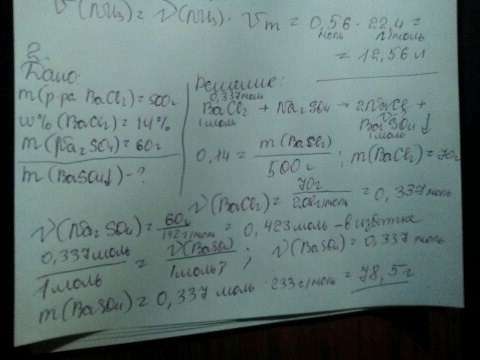 V(NH₃) = ν(NH₃) · Vm = 0,56 моль · 22,4 л/моль =
= 12,56 л
2.
Дано:
m(р-ра BaCl₂) = 500г
w%(BaCl₂) = 14%
m(Na₂SO₄) = 60г
m(BaSO₄↓) - ?
Решение:
0,337моль
BaCl₂ + Na₂SO₄ → 2NaCl +
1моль
BaSO₄↓
1моль
0,14 = m(BaCl₂) / 500г ; m(BaCl₂) = 70г
ν(BaCl₂) = 70г / 208г/моль = 0,337моль
ν(Na₂SO₄) = 60г / 142г/моль = 0,423моль – в избытке
0,337моль / 1моль = ν(BaSO₄) / 1моль ; ν(BaSO₄) = 0,337моль
m(BaSO₄) = 0,337 моль · 233г/моль = 78,5г